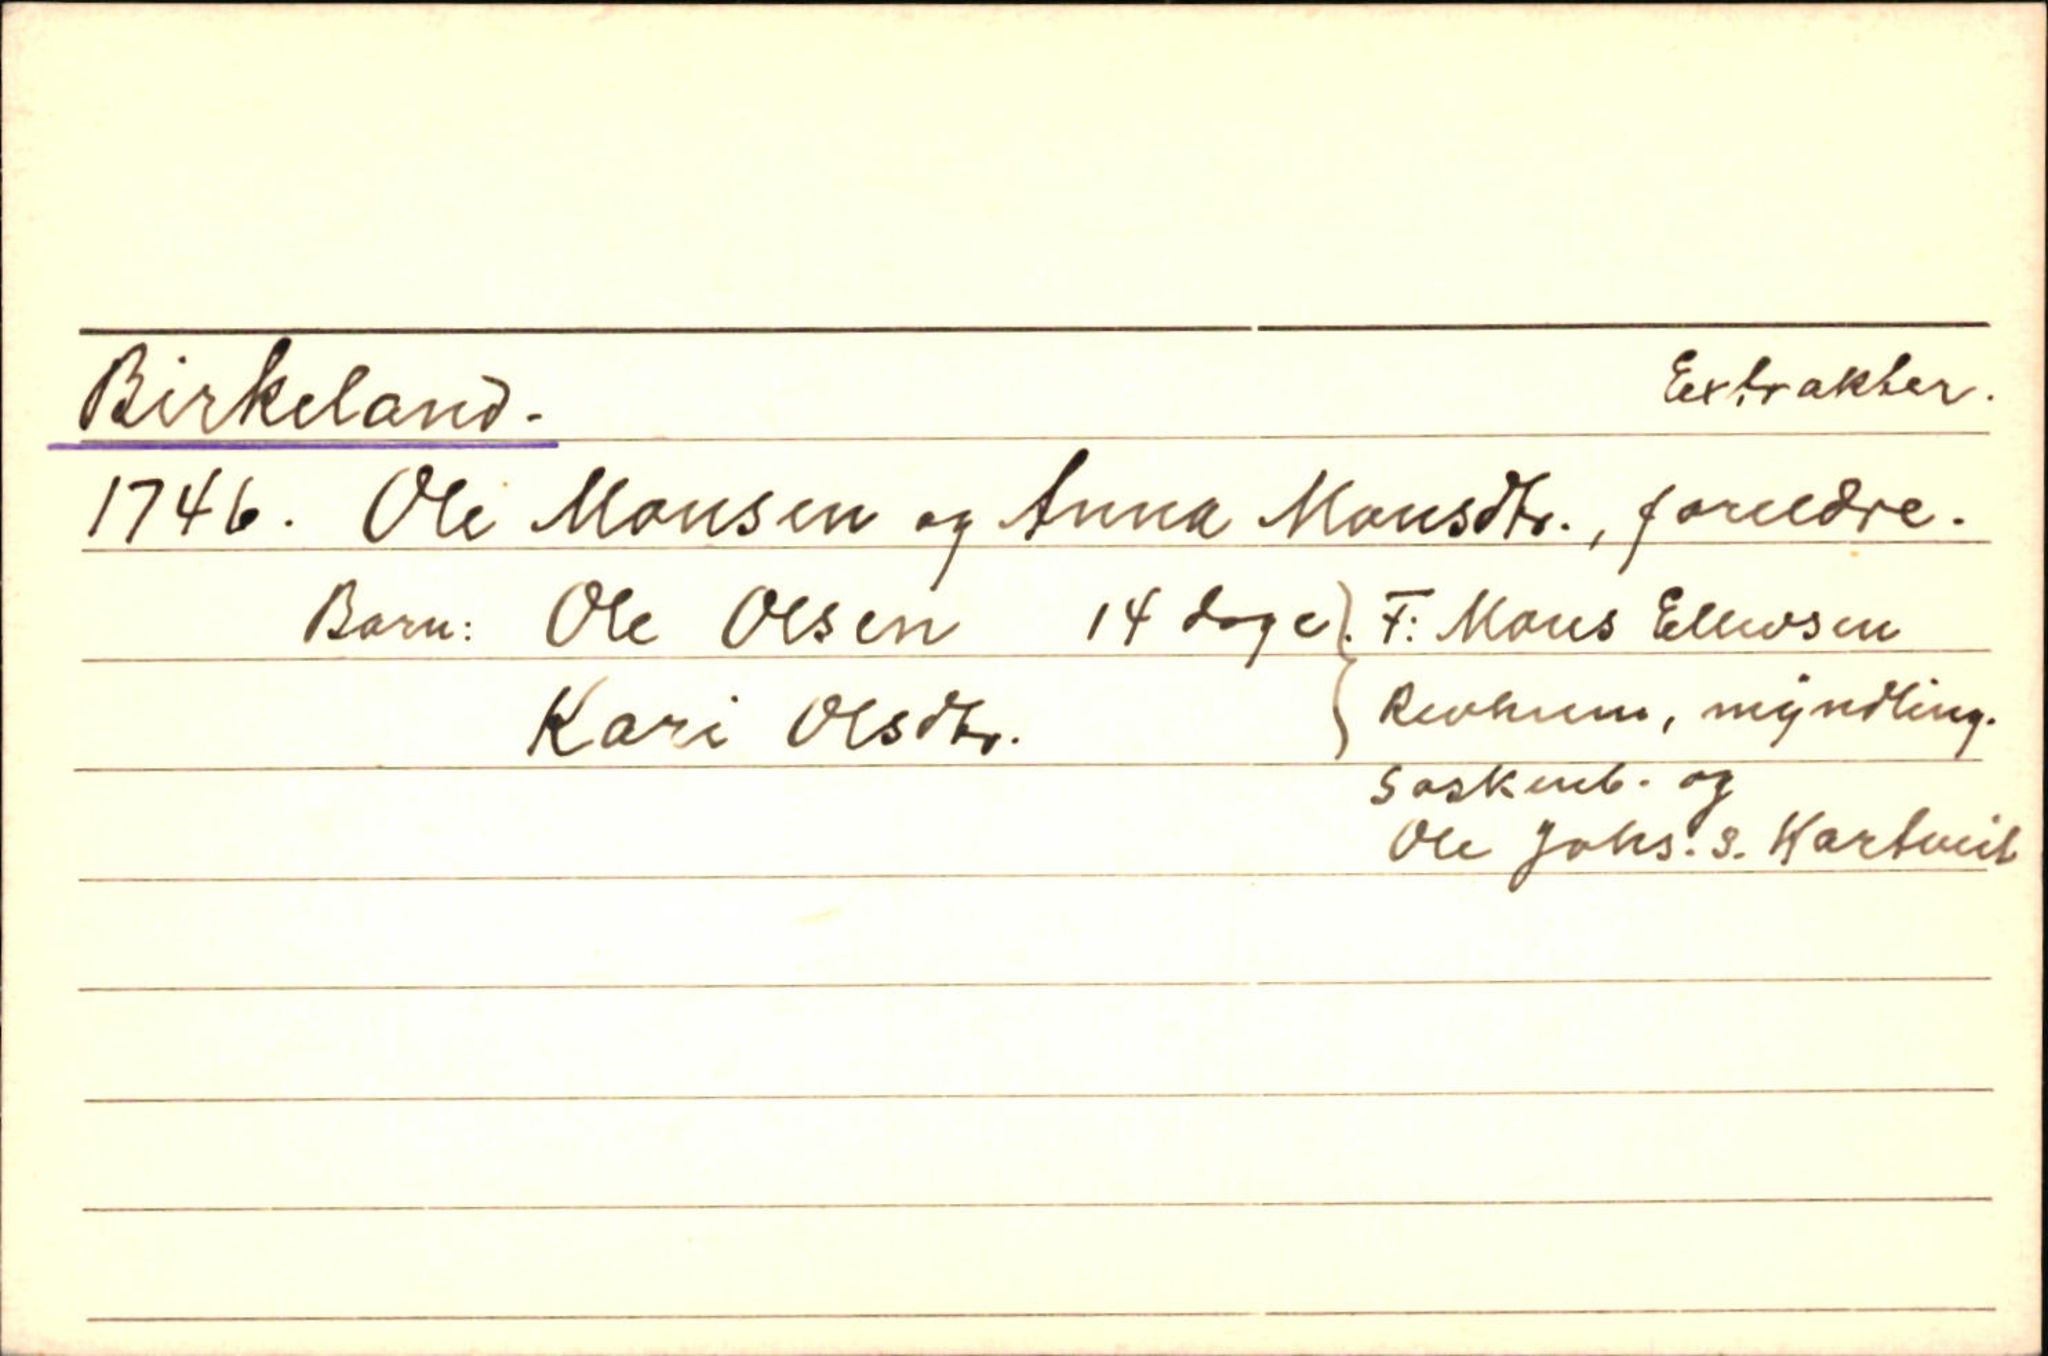 Birkeland. Extrakter.
1746. Ole Monsen og Anna Monsdtr., foreldre.
Barn: Ole Olsen 14 dage. F: Mons Ellevsen
Kari Olsdtr. Revheim, myndling.
søskenb. og
Ole Johs. s. Kartveit